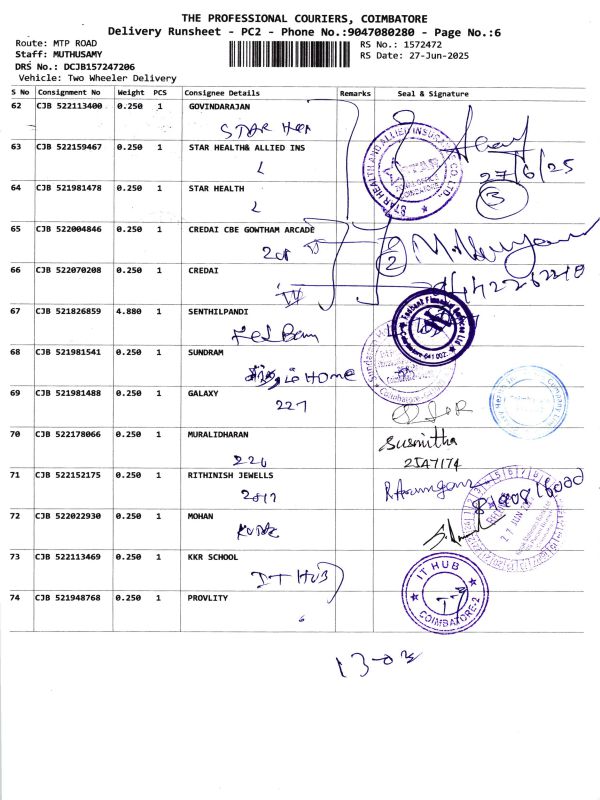 THE PROFESSIONAL COURIERS, COIMBATORE
Delivery Runsheet - PC2 - Phone No.:9047080280 - Page No.:6
Route: MTP ROAD
Staff: MUTHUSAMY
DRS No.: DCJB157247206
Vehicle: Two Wheeler Delivery
RS No.: 1572472
RS Date: 27-Jun-2025
S No Consignment No Weight PCS Consignee Details Remarks Seal & Signature
62 CJB 522113400 0.250 1 GOVINDARAJAN
STAR Hea
63 CJB 522159467 0.250 1 STAR HEALTH& ALLIED INS
STAR HEALTH AND ALLIED INSURANCE CO. LTD.
COIMBATORE
27/6/25
64 CJB 521981478 0.250 1 STAR HEALTH
3
65 CJB 522004846 0.250 1 CREDAI CBE GOWTHAM ARCADE
201
2
66 CJB 522070208 0.250 1 CREDAI
IV
67 CJB 521826859 4.880 1 SENTHILPANDI
68 CJB 521981541 0.250 1 SUNDRAM
HOME
69 CJB 521981488 0.250 1 GALAXY
227
70 CJB 522178066 0.250 1 MURALIDHARAN
226
Susmitha
71 CJB 522152175 0.250 1 RITHINISH JEWELLS
72 CJB 522022930 0.250 1 MOHAN
27 JUN
73 CJB 522113469 0.250 1 KKR SCHOOL
IT HUB
IT HUB
COIMBATORE-2
74 CJB 521948768 0.250 1 PROVLITY
13-03